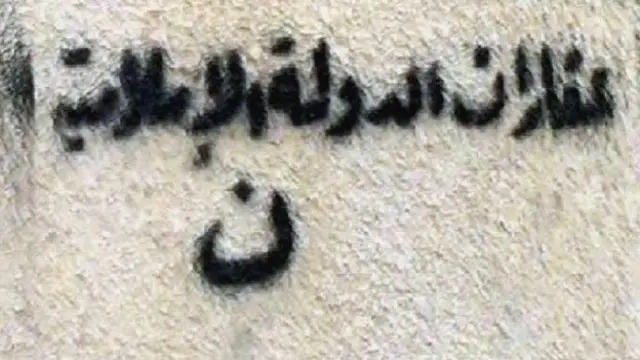 عقاران الدولة الإسلامية
ن